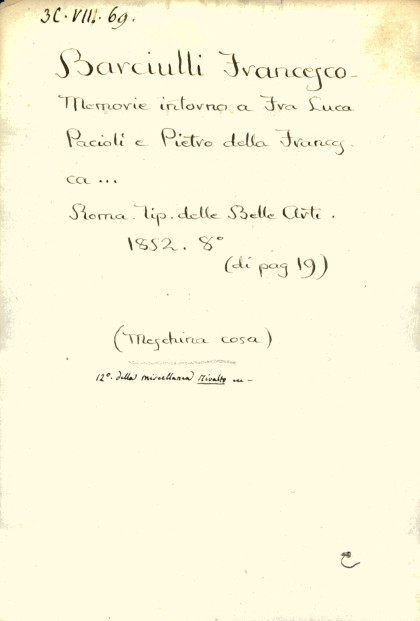 3C. VII. 69.
Barciulli Francesco_
Memorie intorno a Fra Luca
Pacioli e Pietro della Frances
ca ...
Roma. Tip. delle Belle Arti.
1852. 8°
(di pag 19)
(Meschina cosa)
12°. della miscellanea Rivalto